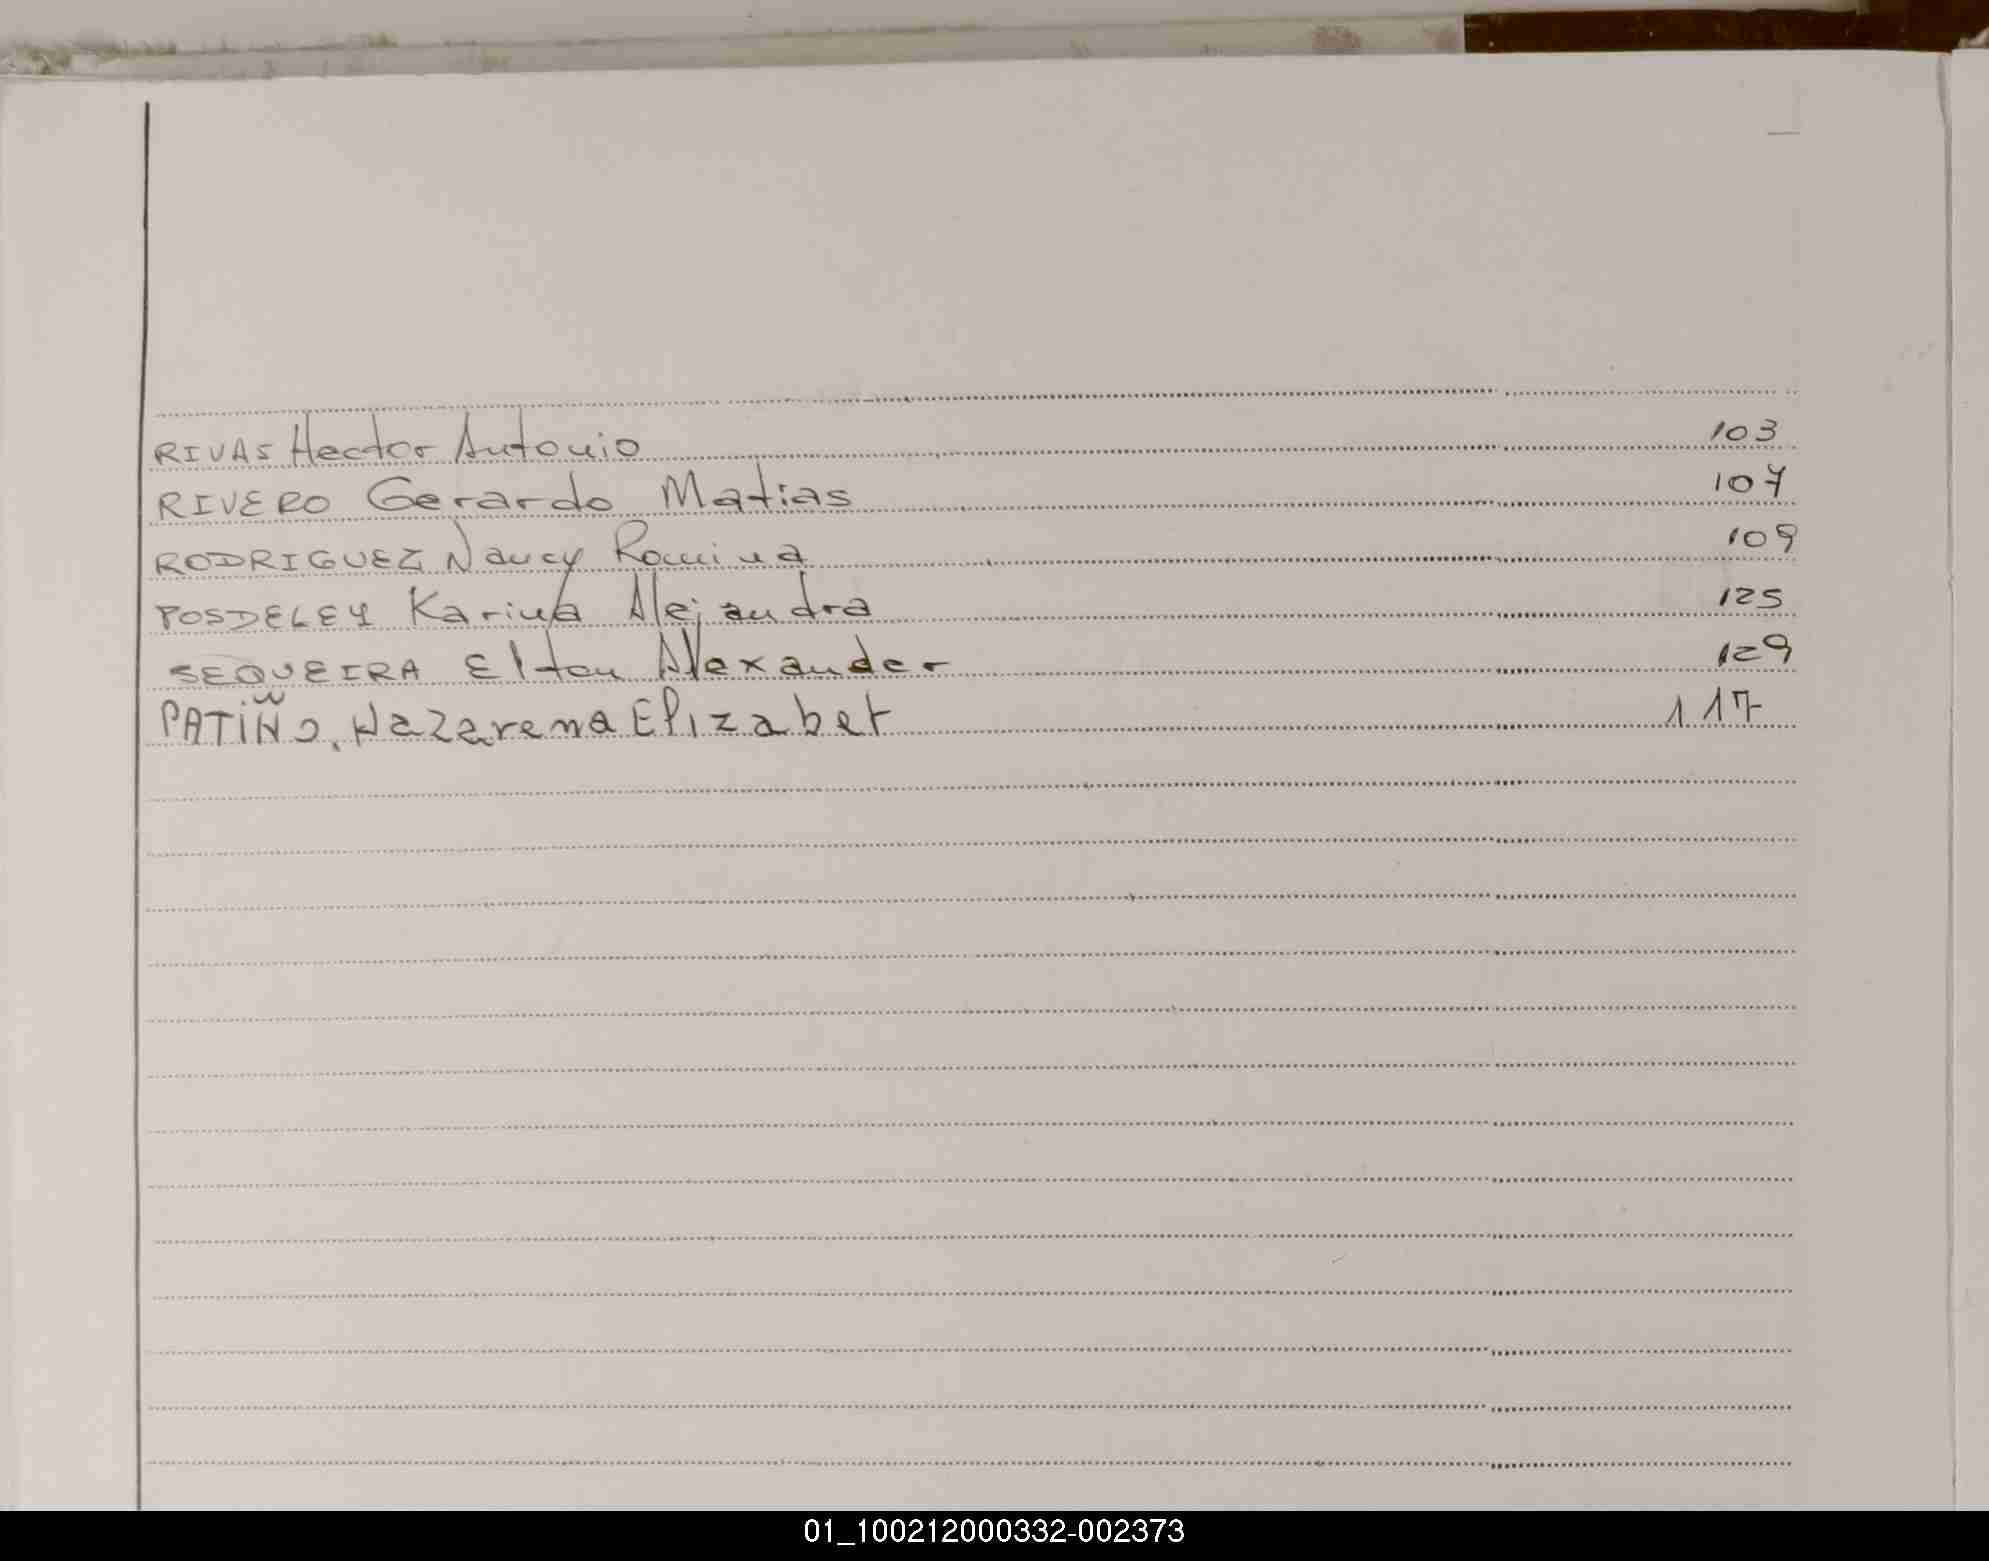 RIVAS Hector Antonio 103
RIVERO Gerardo Matias 107
RODRIGUEZ Nancy Romina 109
POSDELEY Karina Alejandra 125
SEQUEIRA Elton Alexander 129
PATIÑO, Nazarena Elizabet 117
01_100212000332-002373